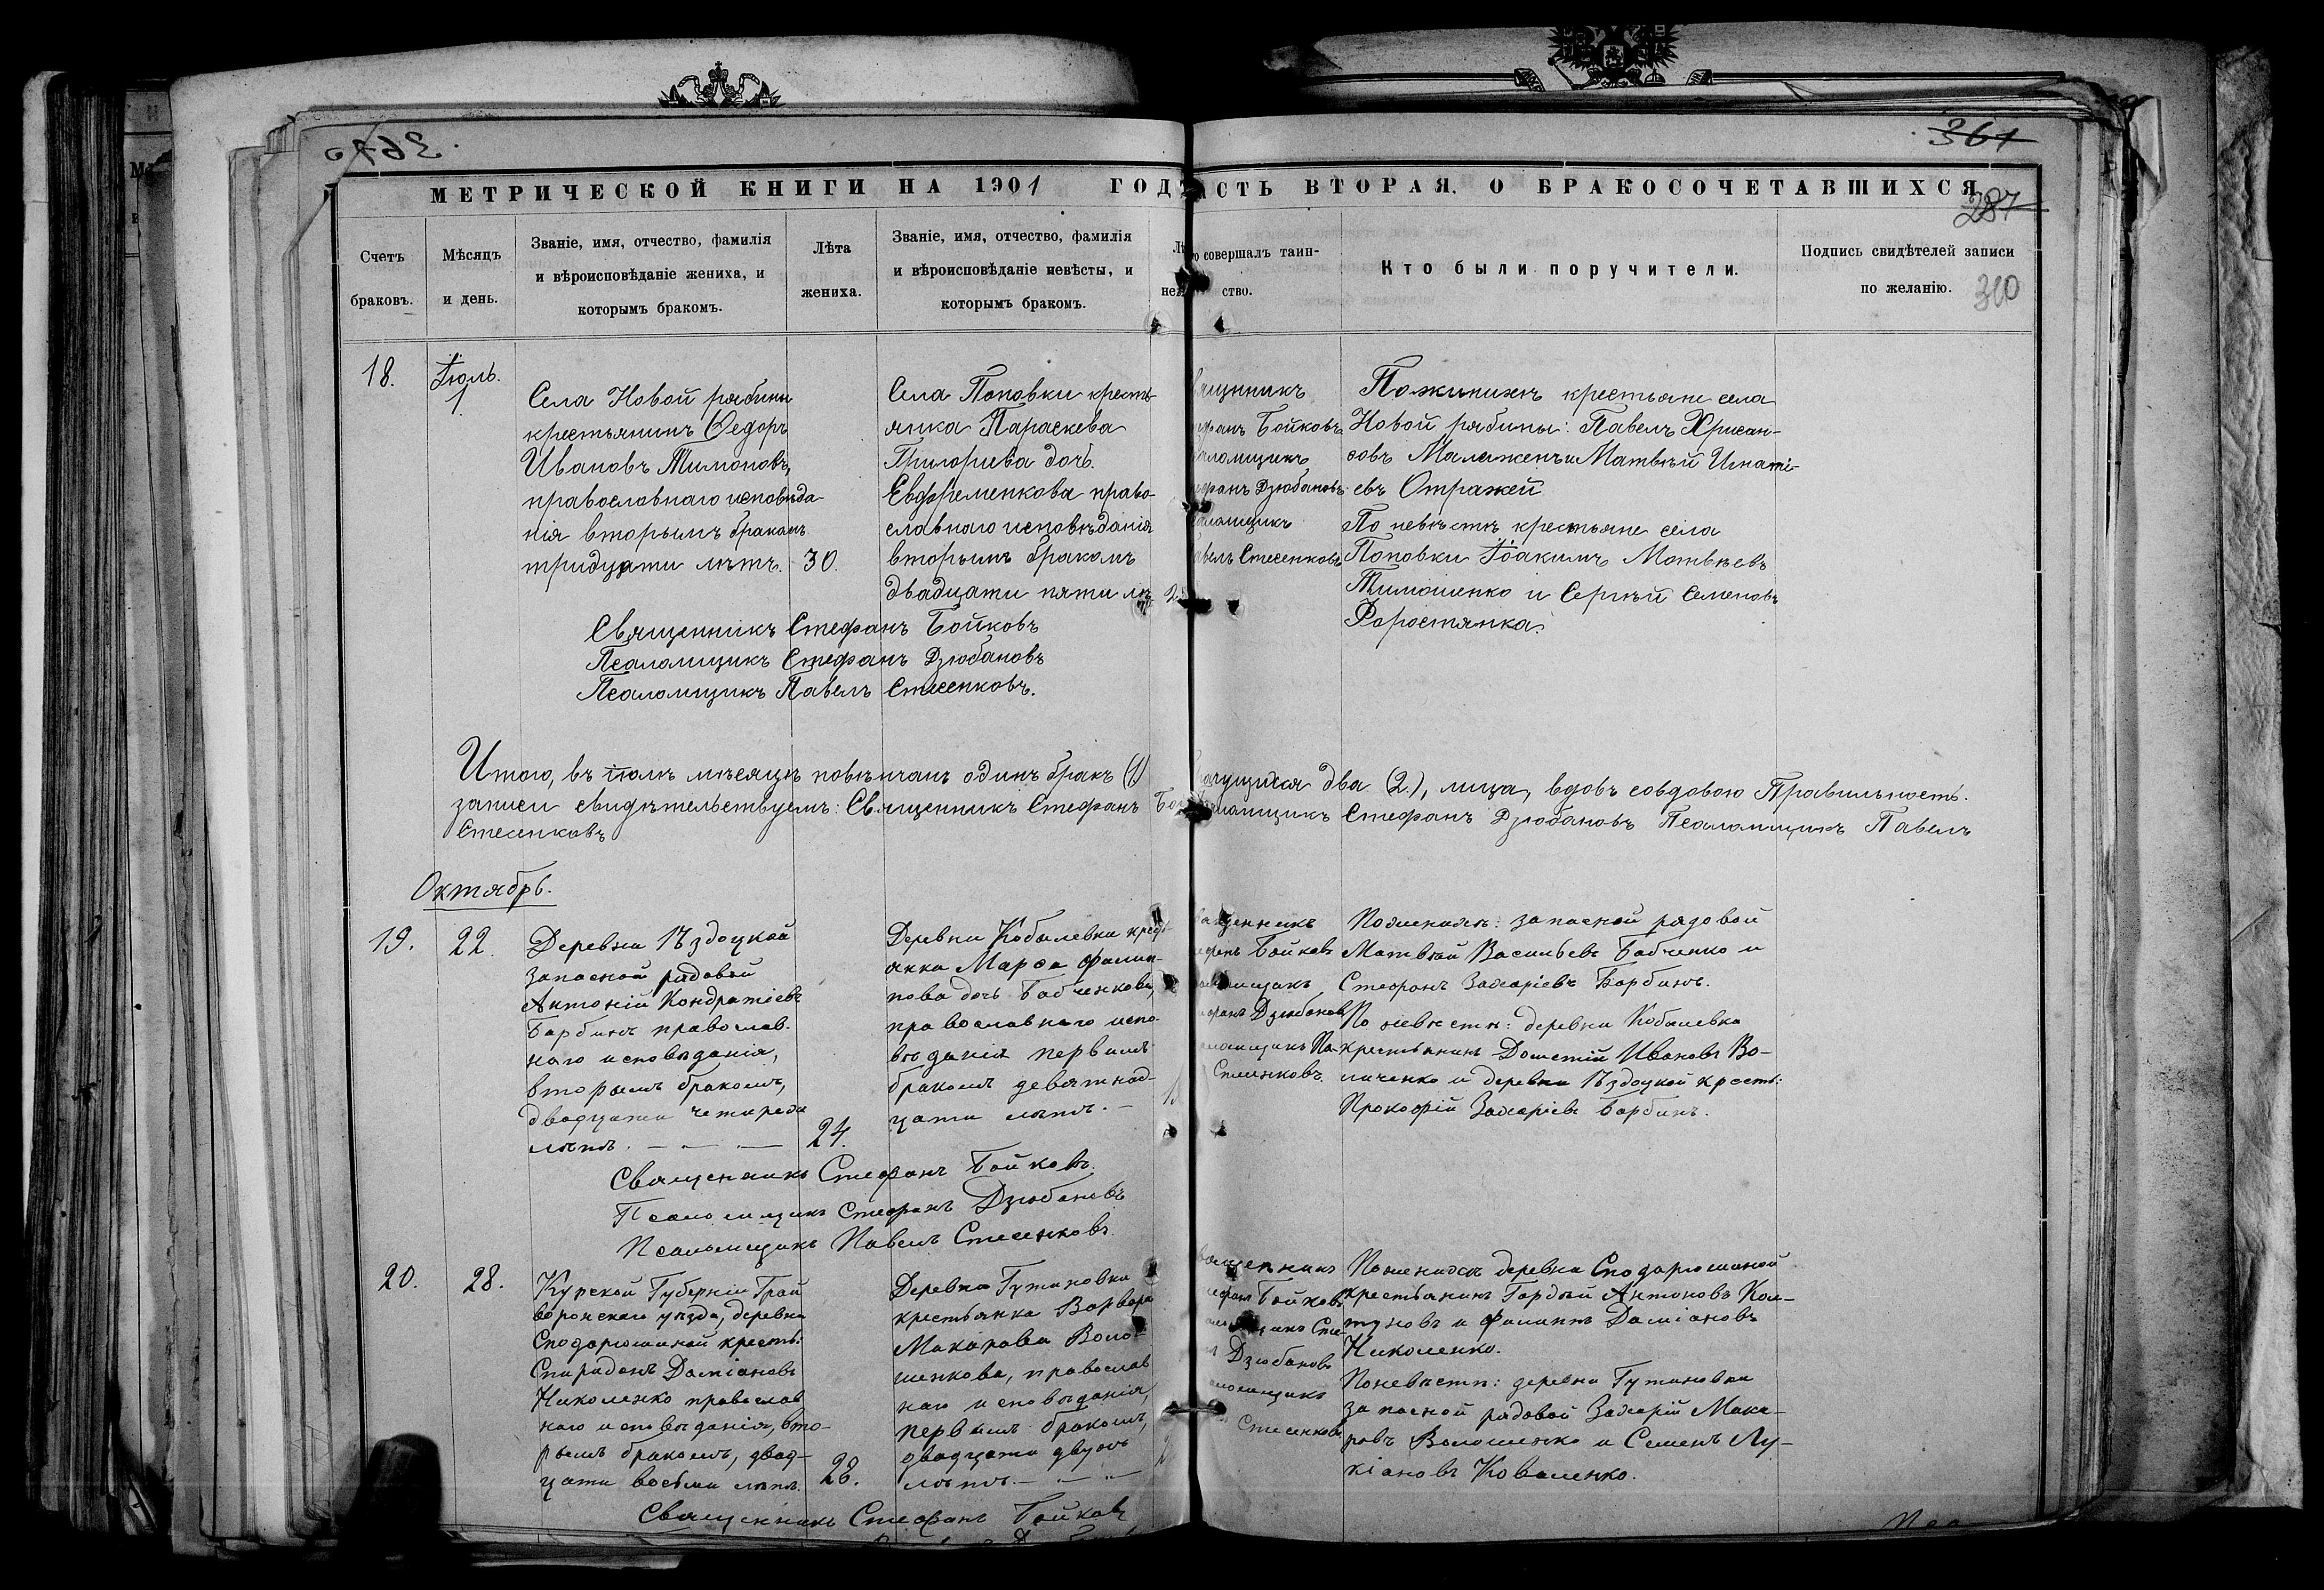 361
МЕТРИЧЕСКОЙ КНИГИ НА 1901 ГОД
АСТЬ ВТОРАЯ, О БРАКОСОЧЕТАВШИХСЯ
287
310
Счетъ браковъ.
Мѣсяцъ и день.
Званіе, имя, отчество, фамилія
и вѣроисповѣданіе жениха, и
которымъ бракомъ.
Лѣта жениха.
Званіе, имя, отчество, фамилія
и вѣроисповѣданіе невѣсты, и
которымъ бракомъ.
совершалъ таин-
ство.
Кто были поручители.
Подпись свидѣтелей записи
по желанію.
18.
Іюль.
1
Села Новой рябины
крестьянинъ Ѳедоръ
Ивановъ Тимоновъ,
православнаго исповѣда-
нія вторымъ бракомъ
тридцати лѣтъ.
30.
Села Поповки кресть-
янка Параскева
Григорьева дочь.
Евфременкова право-
славнаго исповѣданія
вторымъ бракомъ
двадцати пяти лѣ
Бойковъ
Дзюбановъ
Стесенковъ
По женихѣ крестьяне села
Новой рябины: Павелъ Хрисан-
ѳовъ Малюженъ и Матвѣй Игнаті-
евъ Отражей
По невѣстѣ крестьяне села
Поповки Іоакимъ Матвѣевъ
Тимошенко и Сергѣй Семеновъ
Форостянка.
Священникъ Стефанъ Бойковъ
Псаломщикъ Стефанъ Дзюбановъ
Псаломщикъ Павелъ Стесенковъ.
Итого, въ іюлѣ мѣсяцѣ повѣнчанъ одинъ бракъ (1) два (2), лица, вдовъ со вдовою Правильность.
записи свидѣтельствуемъ: Священникъ Стефанъ Стефанъ Дзюбановъ Псаломщикъ Павелъ
Стесенковъ
Октябрь.
19.
22.
Деревни Ѣздоцкой
запасной рядовой
Антоній Кондратіевъ
Барбинъ православ-
наго исповѣданія,
вторымъ бракомъ,
двадцати четырехъ
лѣтъ.
24.
Деревни Кобылевки крест
янка Марѳа Филип-
пова дочь Бабченкова,
православнаго испо-
вѣданія первымъ
бракомъ девятнад-
цати лѣтъ.
Бойковъ
Дзюбановъ
Па-
Стесенковъ.
По женихѣ: запасной рядовой
Матвѣй Васильевъ Бабченко и
Стефанъ Захаріевъ Барбинъ.
По невѣстѣ: деревни Кобылевка
крестьянинъ Дометій Ивановъ Во-
личенко и деревни Ѣздоцкой кресть:
Прокофій Захаріевъ Барбинъ.
Священникъ Стефанъ Бойковъ.
Псаломщикъ Стефанъ Дзюбановъ
Псаломщикъ Павелъ Стесенковъ
20.
28.
Курской Губерніи Грай
воронскаго уѣзда, деревни
Сподарюшиной кресть:
Спиридонъ Даміановъ
Николенко православ
наго исповѣданія, вто-
рымъ бракомъ, двад-
цати восьми лѣтъ.
28.
Деревни Гутиновки
крестьянка Варвара
Макарова Воло-
шенкова, православ
наго исповѣданія,
первымъ бракомъ,
двадцати двухъ
лѣтъ.
Бойковъ
Дзюбановъ
Стесенковъ
По женихѣ деревни Сподарюшиной
крестьянинъ Гордѣй Антоновъ Кол-
туновъ и Филиппъ Даміановъ
Николенко.
По невѣстѣ: деревни Гутиновки
запасной рядовой Захарій Мака-
ровъ Волошенко и Семенъ Лу-
кіановъ Коваленко.
Священникъ Стефанъ Бойковъ